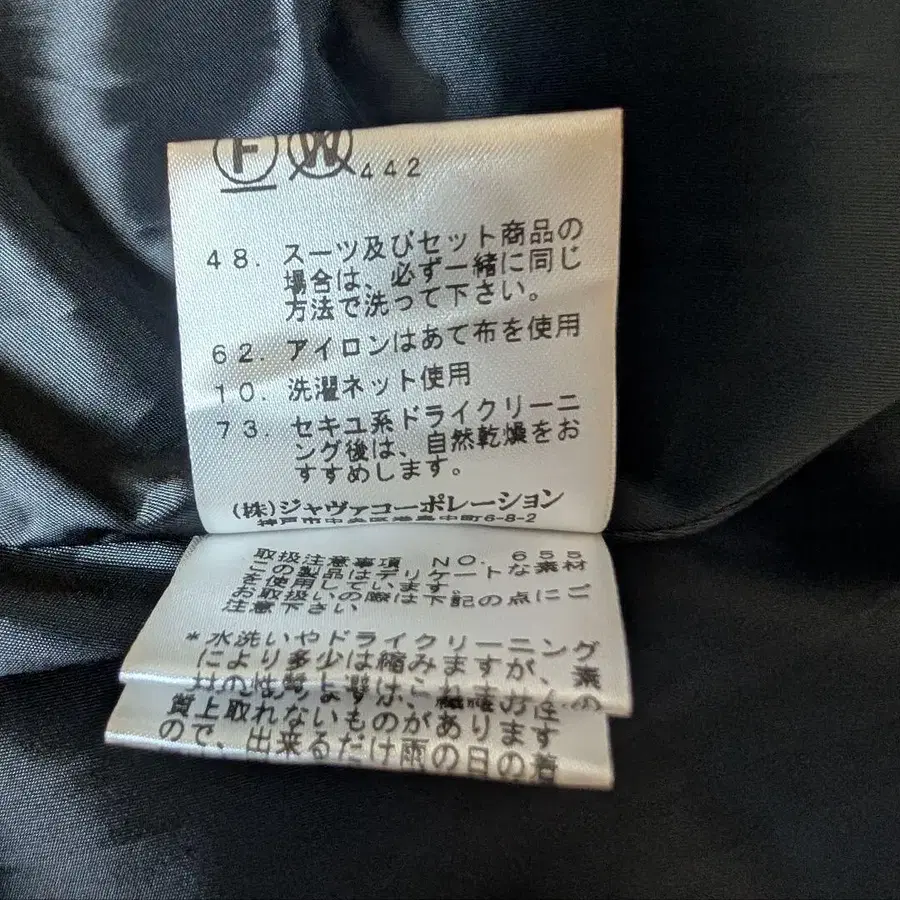 F W 442
48. スーツ及びセット商品の
場合は、必ず一緒に同じ
方法で洗って下さい。
62. アイロンはあて布を使用
10. 洗濯ネット使用
73. セキユ系ドライクリーニ
ング後は、自然乾燥をお
すすめします。
(株)ジャヴァコーポレーション
神戸市中央区港島中町6-8-2
取扱注意事項 NO. 655
この製品はデリケートな素材
を使用しています。
お取扱いの際は下記の点にご
注意下さい
*水洗いやドライクリーニング
により多少は縮みますが、素
材の性質上避け
質上取れないものがあります
ので、出来るだけ雨の日の着